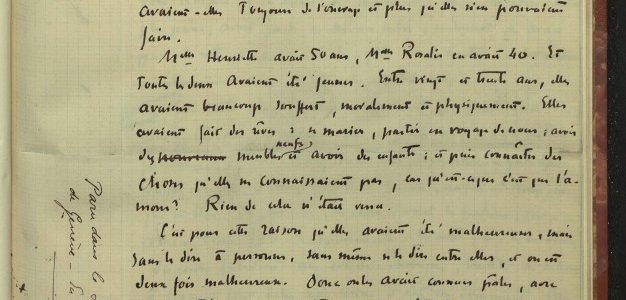 avaient-elles toujours de l'ouvrage et plus qu'elles n'en pouvaient
faire.
Mlle Henriette avait 50 ans, Mlle Rosalie en avait 40. Et
toutes les deux avaient été jeunes. Entre vingt et trente ans, elles
avaient beaucoup souffert, moralement et physiquement. Elles
avaient fait des rêves : se marier, partir en voyage de noces ; avoir
des nouveaux meubles neufs et avoir des enfants ; et puis connaître des
choses qu'elles ne connaissaient pas, car qu'est-ce que c'est que l'a-
mour ? Rien de cela n'était venu.
C'est pour cette raison qu'elles avaient été malheureuses, mais
sans le dire à personne, sans même se le dire entre elles, et on est
deux fois malheureux. Donc on les avait connues pâles, avec
Paru dans le
de Genève - du